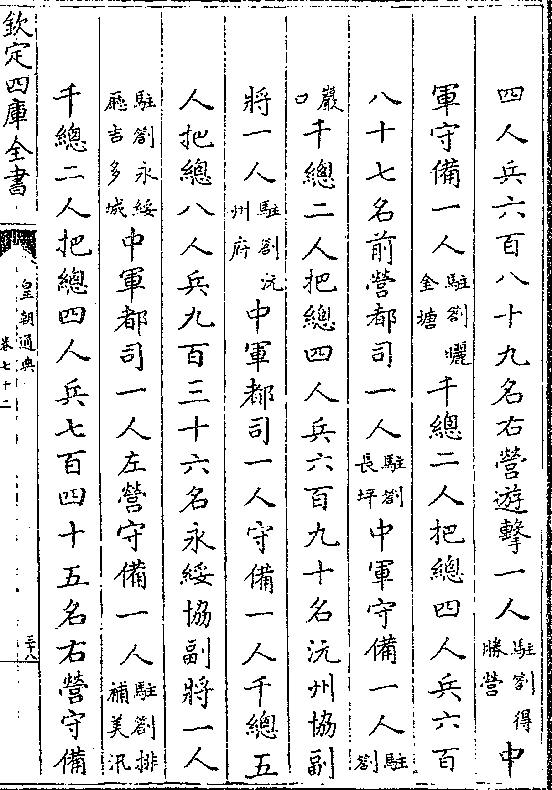 四人兵六百八十九名右營遊擊一人駐劄得勝營中
軍守備一人駐劄曬金塘千總二人把總四人兵六百
八十七名前營都司一人駐劄長坪中軍守備一人駐劄
巖口千總二人把總四人兵六百九十名沅州協副
將一人駐劄沅州府中軍都司一人守備一人千總五
人把總八人兵九百三十六名永綏協副將一人
駐劄永綏廳吉多城中軍都司一人左營守備一人駐劄排補美汛
千總二人把總四人兵七百四十五名右營守備
欽定四庫全書
皇朝通典
卷七十二
三十八